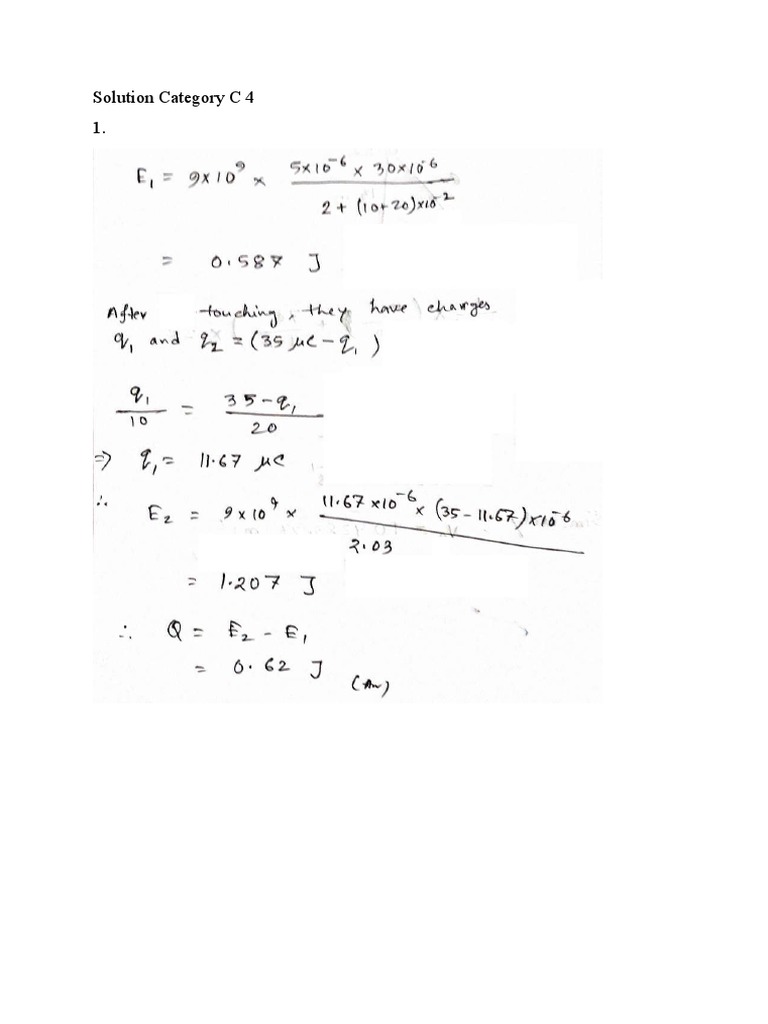 Solution Category C 4
1.
E₁ = 9×10⁹ × (5×10⁻⁶ × 30×10⁻⁶) / (2 + (10+20)×10⁻²)
= 0.587 J
After touching, they have charges
q₁ and q₂ = (35 μC - q₁)
q₁/10 = (35-q₁)/20
⇒ q₁ = 11.67 μC
∴ E₂ = 9×10⁹ × (11.67×10⁻⁶ × (35-11.67)×10⁻⁶) / 2.03
= 1.207 J
∴ Q = E₂ - E₁
= 0.62 J
(Ans)